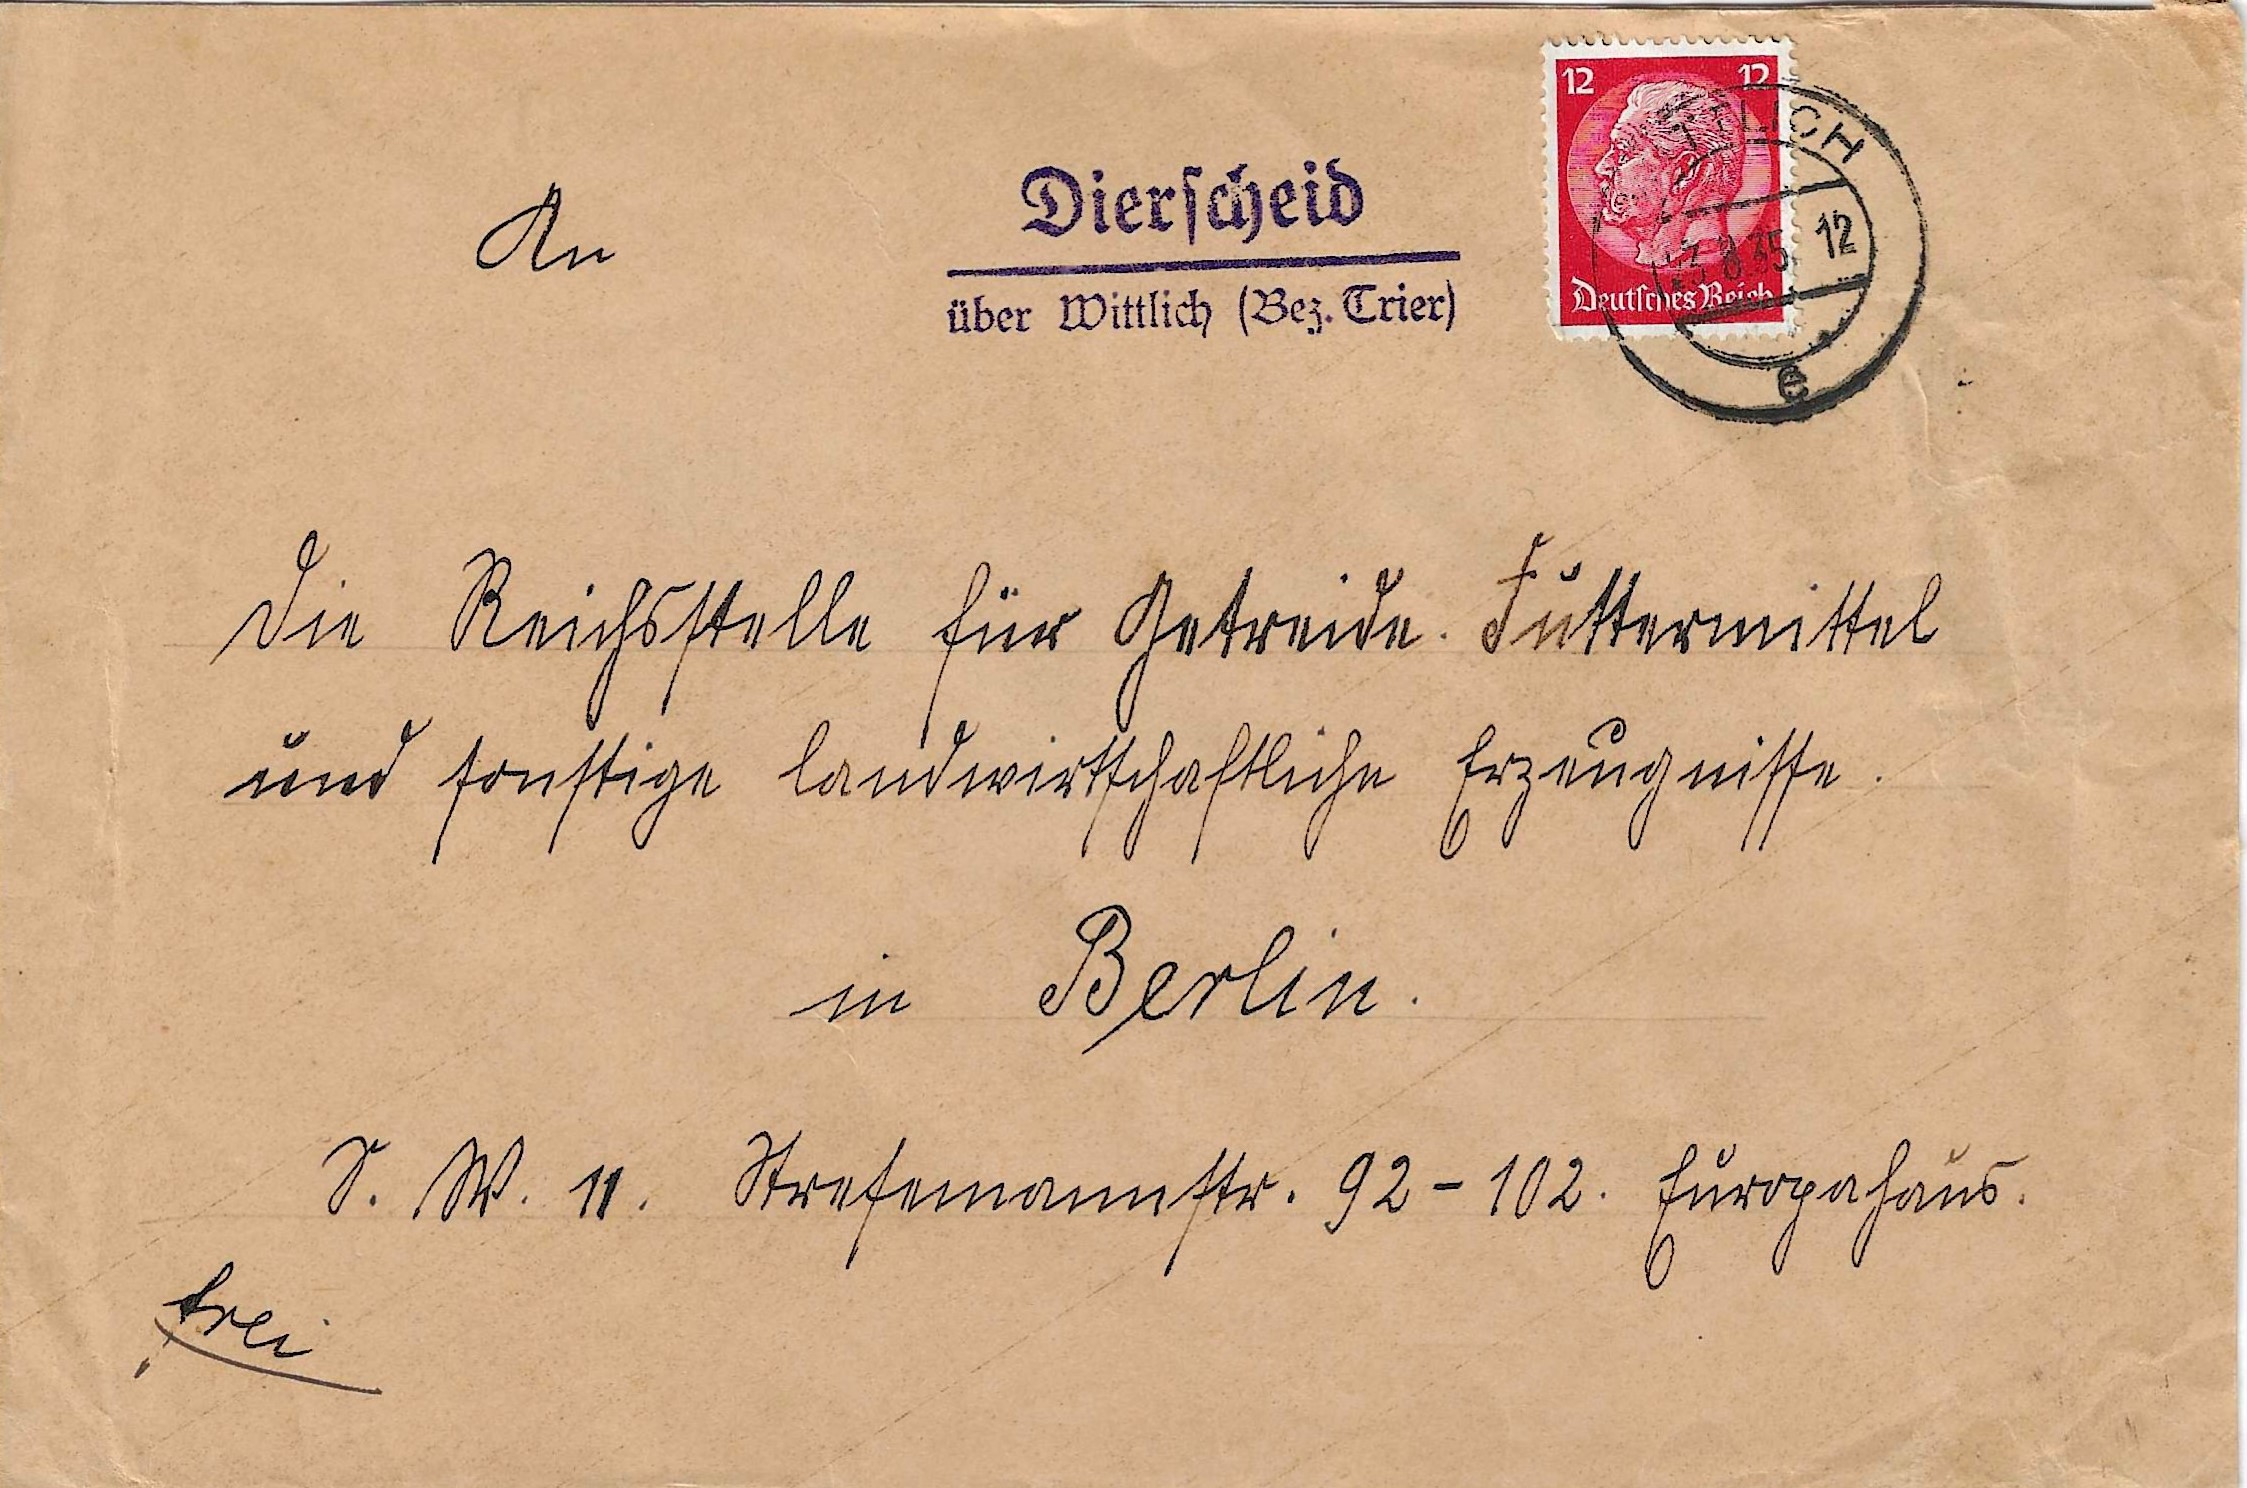 12 12
Deutsches Reich
TTLICH
23.8.35 12
e
Dierscheid
über Wittlich (Bez. Trier)
An
die Reichsstelle für Getreide. Futtermittel
und sonstige landwirtschaftliche Erzeugnisse.
in Berlin.
S. W. 11. Stresemannstr. 92-102. Europahaus.
frei